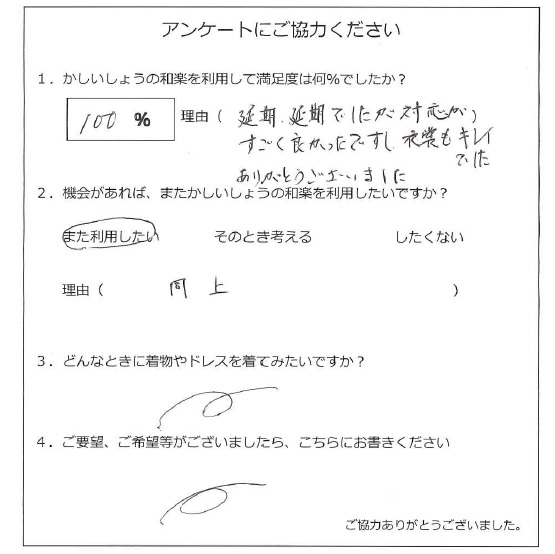 アンケートにご協力ください
1．かしいしょうの和楽を利用して満足度は何%でしたか？
100 % 理由（ 延期、延期でしたが対応が ）
すごく良かったですし衣裳もキレイ
でした
ありがとうございました
2．機会があれば、またかしいしょうの和楽を利用したいですか？
また利用したい そのとき考える したくない
理由（ 同上 ）
3．どんなときに着物やドレスを着てみたいですか？
4．ご要望、ご希望等がございましたら、こちらにお書きください
ご協力ありがとうございました。